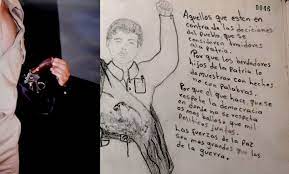 0046
Aquellos que esten en
contra de las decisiones
del pueblo que se
consideren traidores
a la patria.
Por que los berdaderos
hijos de la Patria lo
demuestran con hechos
no con palabras.
Por que el que hace que se
respete la democracia
en donde no se respeta
es mas balioso que mil
Politicos juntos.
Las fuerzas de la Paz
son mas grandes que las
de la guerra.